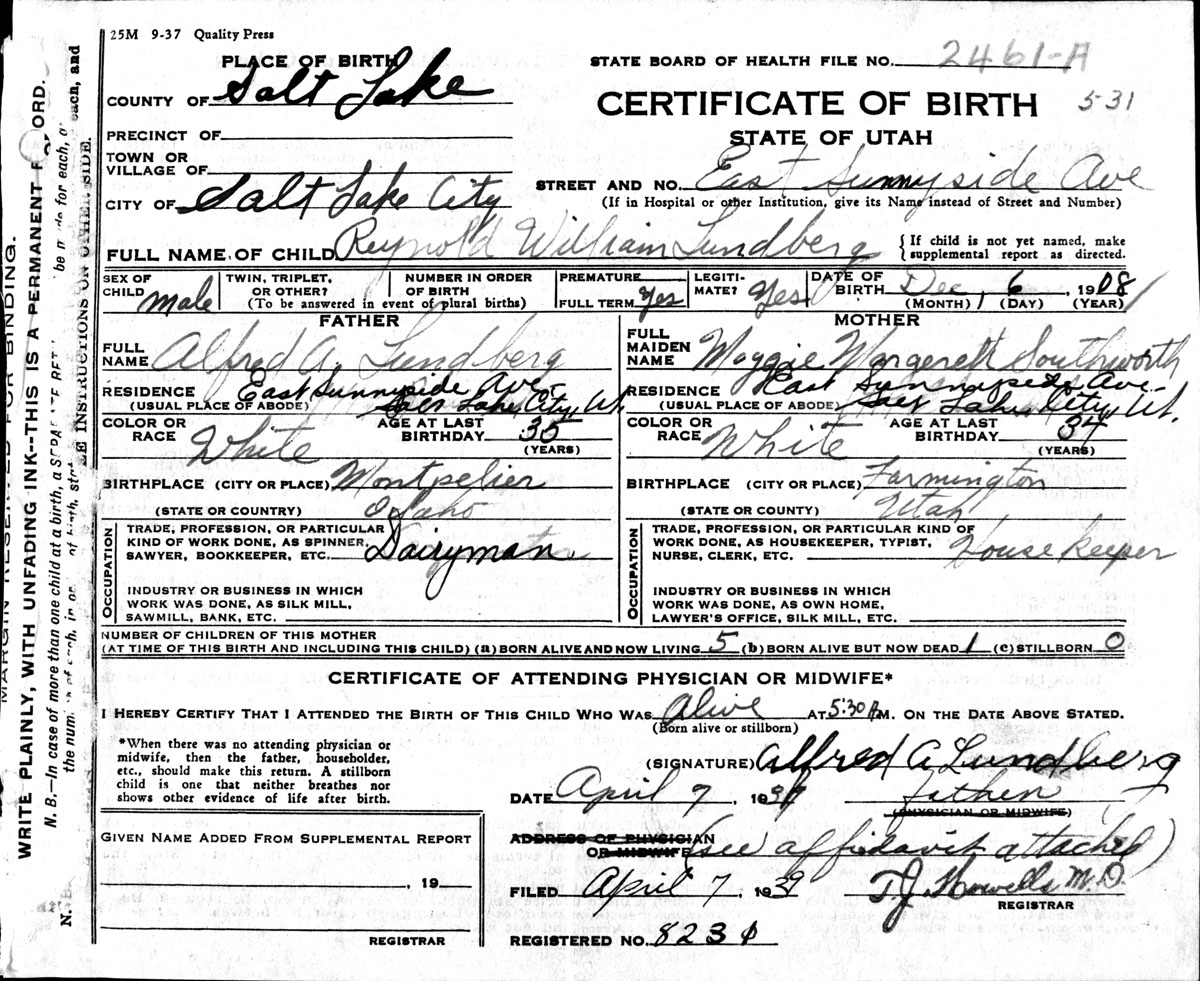 25M 9-37 Quality Press
PLACE OF BIRTH
COUNTY OF Salt Lake
PRECINCT OF
TOWN OR VILLAGE OF
CITY OF Salt Lake City
STATE BOARD OF HEALTH FILE NO. 2461-A
CERTIFICATE OF BIRTH 5-31
STATE OF UTAH
STREET AND NO. East Sunnyside Ave
(If in Hospital or other Institution, give its Name instead of Street and Number)
FULL NAME OF CHILD Reynold William Lundberg
{ If child is not yet named, make
supplemental report as directed.
SEX OF CHILD Male
TWIN, TRIPLET, OR OTHER?
NUMBER IN ORDER OF BIRTH
(To be answered in event of plural births)
PREMATURE
FULL TERM Yes
LEGITI-MATE? Yes
DATE OF BIRTH Dec 6, 1908
(MONTH) (DAY) (YEAR)
FATHER
FULL NAME Alfred A. Lundberg
RESIDENCE East Sunnyside Ave
(USUAL PLACE OF ABODE) Salt Lake City, Ut.
COLOR OR RACE White
AGE AT LAST BIRTHDAY 35
(YEARS)
BIRTHPLACE (CITY OR PLACE) Montpelier
(STATE OR COUNTRY) Idaho
OCCUPATION
TRADE, PROFESSION, OR PARTICULAR
KIND OF WORK DONE, AS SPINNER,
SAWYER, BOOKKEEPER, ETC. Dairyman
INDUSTRY OR BUSINESS IN WHICH
WORK WAS DONE, AS SILK MILL,
SAWMILL, BANK, ETC.
MOTHER
FULL MAIDEN NAME Maggie Margerett Southworth
RESIDENCE East Sunnyside Ave.
(USUAL PLACE OF ABODE) Salt Lake City, Ut.
COLOR OR RACE White
AGE AT LAST BIRTHDAY 34
(YEARS)
BIRTHPLACE (CITY OR PLACE) Farmington
(STATE OR COUNTY) Utah
OCCUPATION
TRADE, PROFESSION, OR PARTICULAR KIND OF
WORK DONE, AS HOUSEKEEPER, TYPIST,
NURSE, CLERK, ETC. Housekeeper
INDUSTRY OR BUSINESS IN WHICH
WORK WAS DONE, AS OWN HOME,
LAWYER'S OFFICE, SILK MILL, ETC.
NUMBER OF CHILDREN OF THIS MOTHER
(AT TIME OF THIS BIRTH AND INCLUDING THIS CHILD) (a) BORN ALIVE AND NOW LIVING 5 (b) BORN ALIVE BUT NOW DEAD 1 (c) STILLBORN 0
CERTIFICATE OF ATTENDING PHYSICIAN OR MIDWIFE*
I HEREBY CERTIFY THAT I ATTENDED THE BIRTH OF THIS CHILD WHO WAS Alive AT 5:30 A.M. ON THE DATE ABOVE STATED.
(Born alive or stillborn)
*When there was no attending physician or
midwife, then the father, householder,
etc., should make this return. A stillborn
child is one that neither breathes nor
shows other evidence of life after birth.
(SIGNATURE) Alfred A Lundberg
DATE April 7, 1939 father
(PHYSICIAN OR MIDWIFE)
ADDRESS OF PHYSICIAN
OR MIDWIFE (see affidavit attached)
FILED April 7, 1939 T.J. Howells M.D.
REGISTRAR
REGISTERED NO. 8231
GIVEN NAME ADDED FROM SUPPLEMENTAL REPORT
, 19
REGISTRAR
MARGIN RESERVED FOR BINDING.
WRITE PLAINLY, WITH UNFADING INK--THIS IS A PERMANENT RECORD.
N. B.—In case of more than one child at a birth, a